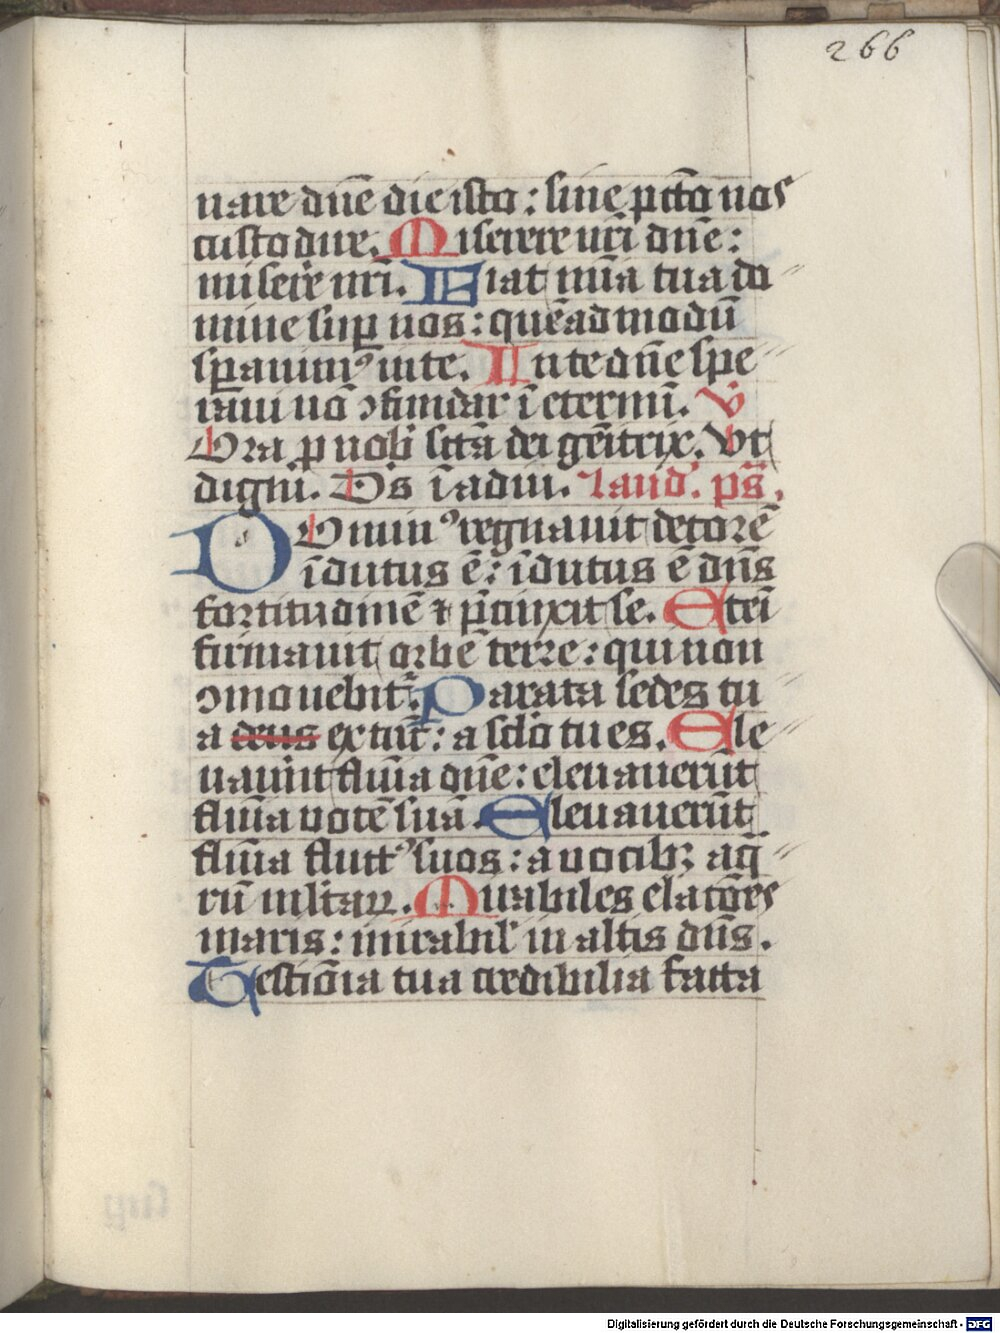 266
nare dn̄e die isto: sine pctō nos
custodire. Miserere nr̄i dn̄e:
misere nr̄i. Fiat mīa tua do
mine sup nos: quēadmodū
sꝑauimꝰ in te. In te dn̄e spe
raui nō ↄfundar ī eternū. V
Ora p nob̄ sctā dei gēitrix. Vt
digni. Ds īadiu. Laud̛. ps̄.
DOminꝰ regnauit decorē
īdutus ē: īdutus ē dn̄s
fortitudinē ⁊ p̄cinxit se. Eteī
firmauit orbē terre: qui non
ↄmouebit᷑. Parata sedes tu
a deus ex tūc: a sclō tu es. Ele
uauūt flūia dn̄e: eleuauerūt
flūia uocē suā. Eleuauerūt
flūia fluctꝰ suos: a uocibꝫ aq̄
rū mltaꝝ. Mirabiles elatōes
maris: mirabil̛ in altis dn̄s.
Testiōia tua credibilia facta
Digitalisierung gefördert durch die Deutsche Forschungsgemeinschaft - DFG